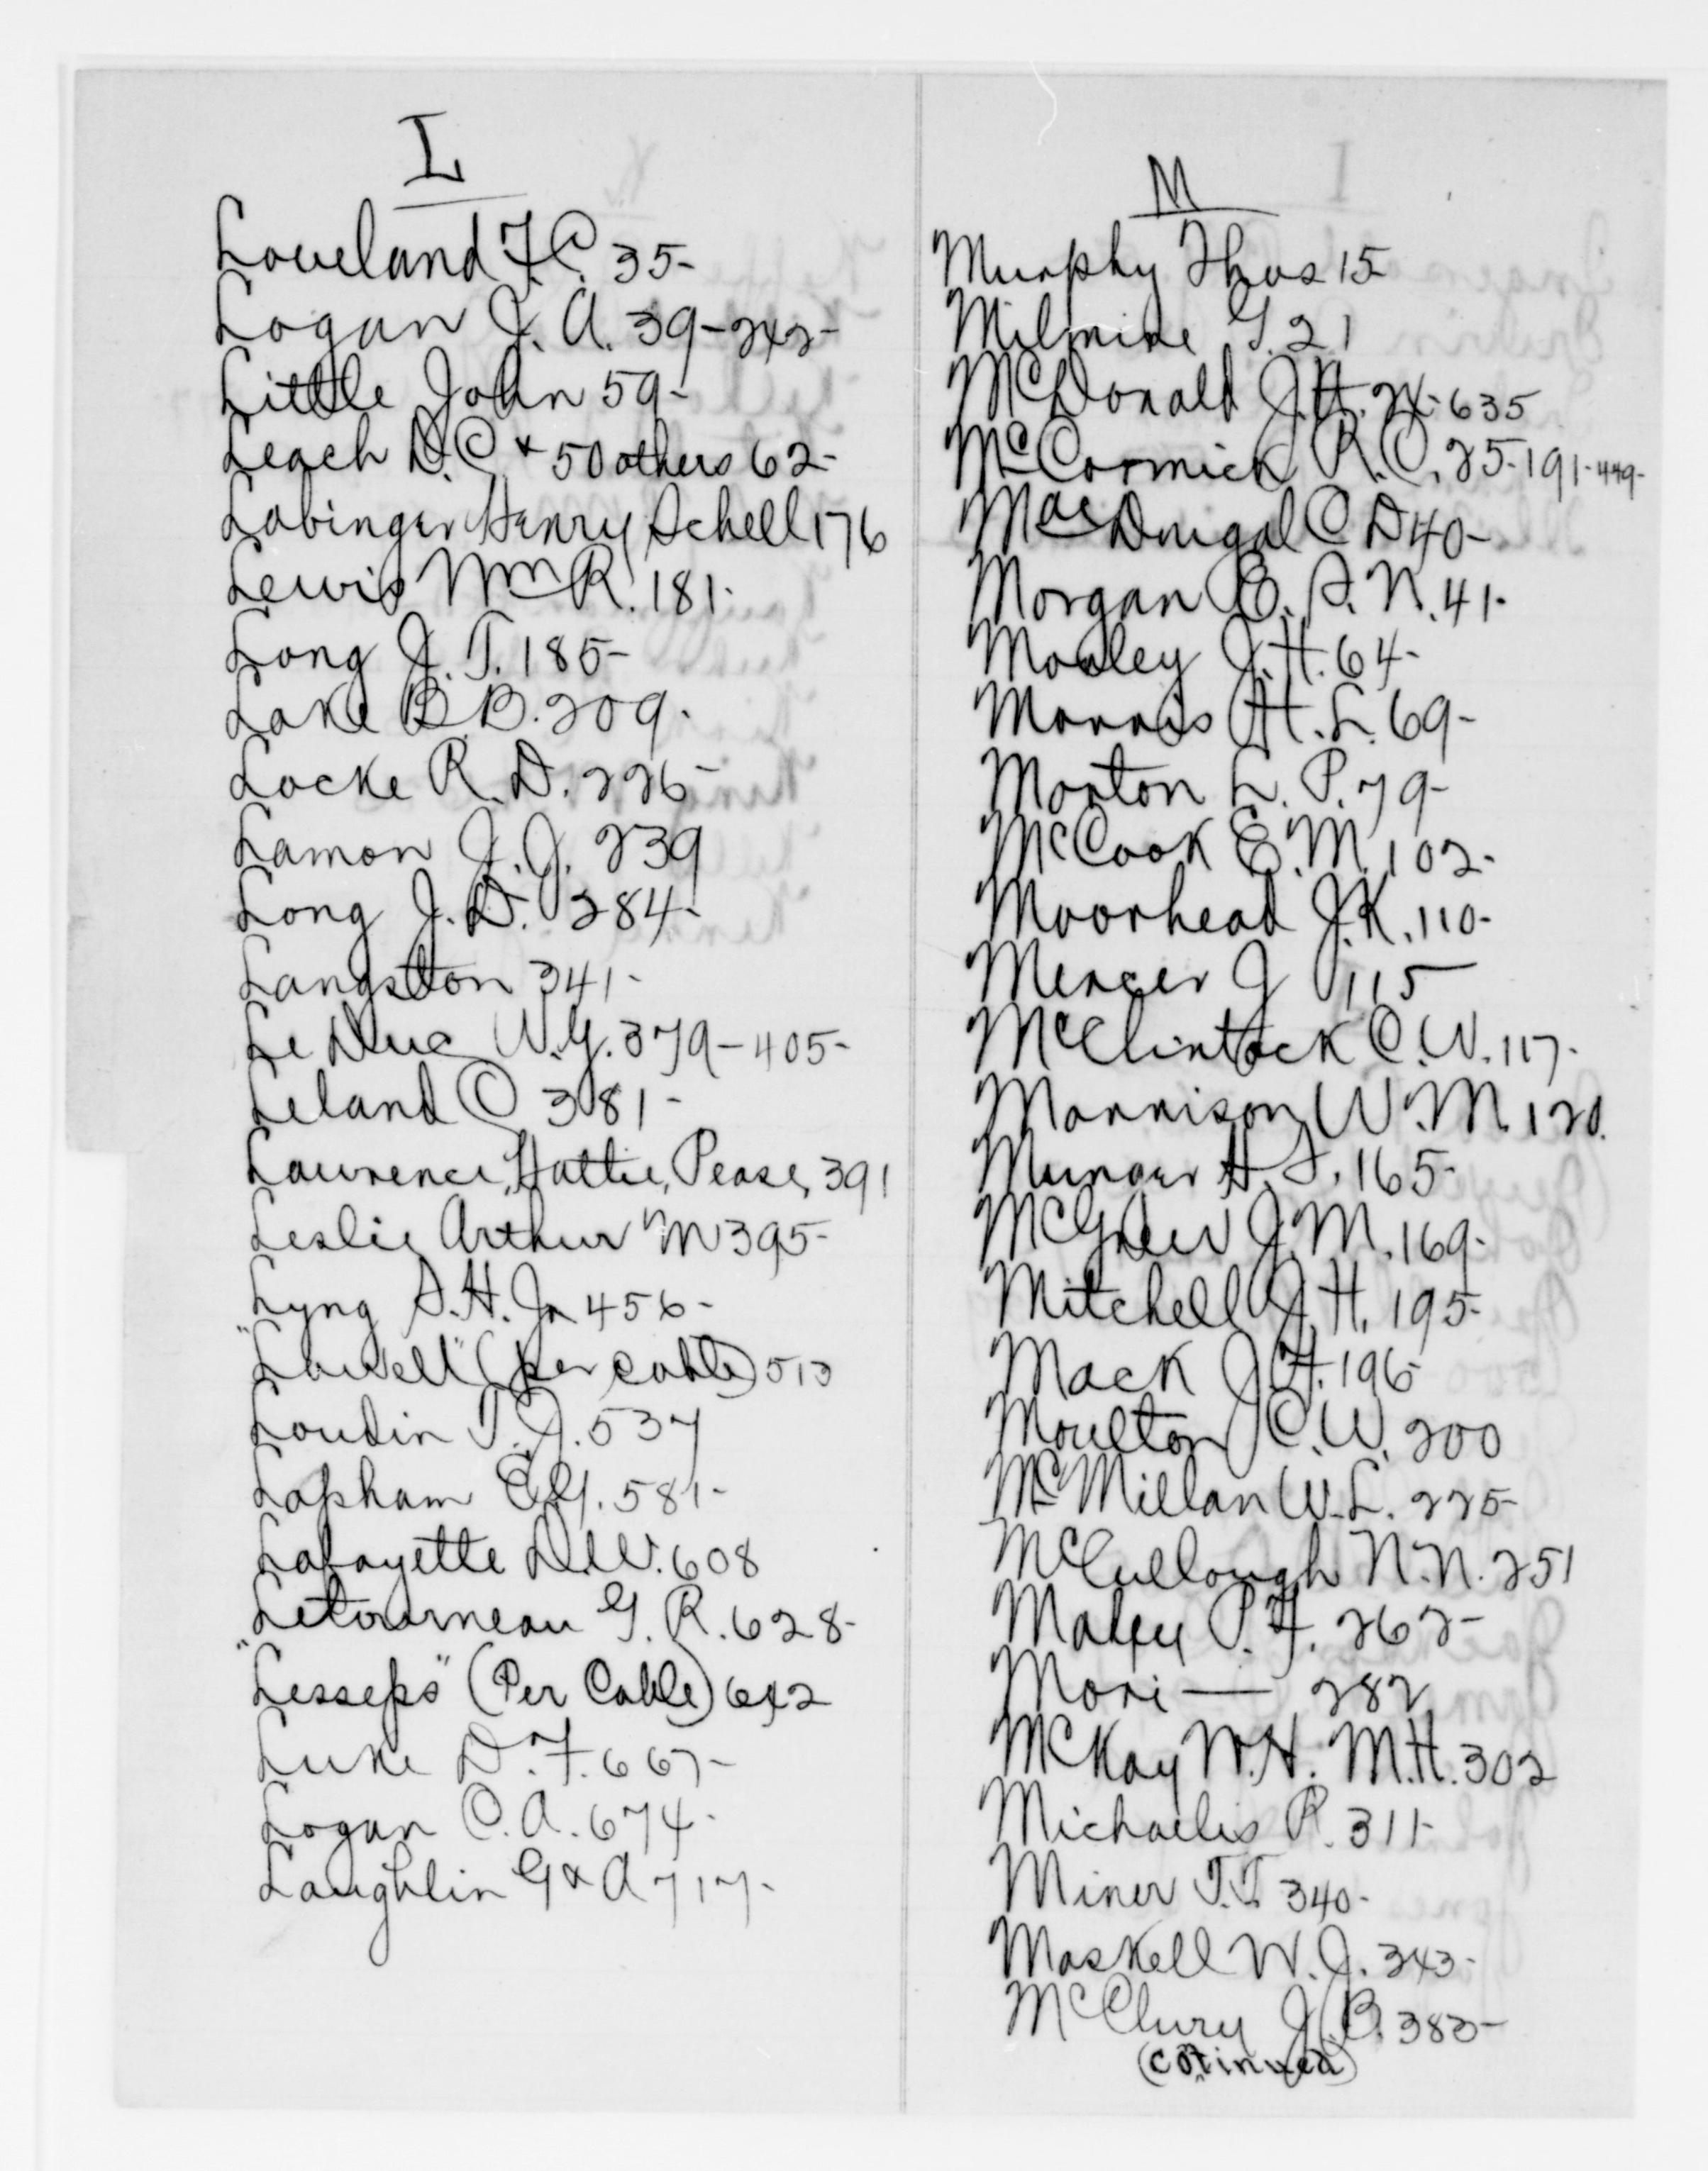 L
Loveland F.C. 35-
Logan J. A. 39-242-
Little John 59-
Leach D.C + 50 others 62-
Labinger Henry Schell 176
Lewis Wm R. 181-
Long J. T. 185-
Lake B B. 209-
Locke R. D. 226-
Lamon J. J. 239
Long J. D. 284-
Langston 341-
Le Duc W.G. 379-405-
Leland C 381-
Lawrence, Hattie, Pease, 391
Leslie Arthur M 395-
Lyng S. H. Jr 456-
"Lowell" (per cable) 513
Loudin T. J. 537
Lapham E.G. 581-
Lafayette D.W. 608
Letourneau G. R. 628-
"Lesseps" (Per Cable) 642
Luke D. F. 667-
Logan C. A. 674-
Laughlin G & A 717-
M
Murphy Thos 15
Milmine G. 21
McDonald J.H. 24-635
McCormick R. C. 25-191-449-
MacDougal C D 40-
Morgan E. S. N. 41-
Morley J. H. 64-
Morris H. L. 69-
Morton L. P. 79-
McCook E. M. 102-
Moorhead J.K. 110-
Mercer J 115
McClintock C.W. 117-
Morrison W. M. 120.
Munger H. S. 165-
McGrew J. M. 169-
Mitchell J. H. 195-
Mack J H. 196
Moulton C.W. 200
McMillan W. L. 225-
McCullough N. N. 251
P. F. 262-
Mori — 282
McKay N. H. M.H. 302
Michaelis R. 311-
Miner T.T 340-
Maskell W. J. 343-
McClury J. B. 383-
(cotinued)